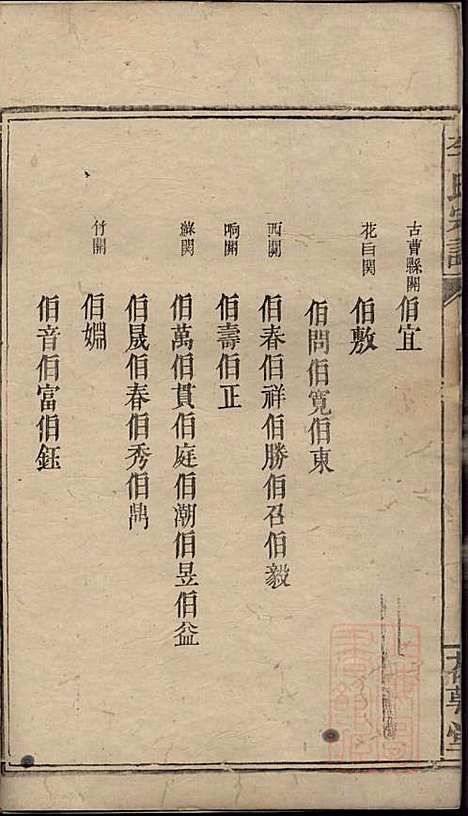 李氏宗譜
古曹縣關 佰宜
花自関 佰敷
佰問佰寬佰東
西關 佰春佰祥佰勝佰召佰毅
响關 佰壽佰正
蘇関 佰萬佰貫佰庭佰潮佰昱佰益
佰晟佰春佰秀佰鼎
付關 佰婣
佰音佰富佰鈺